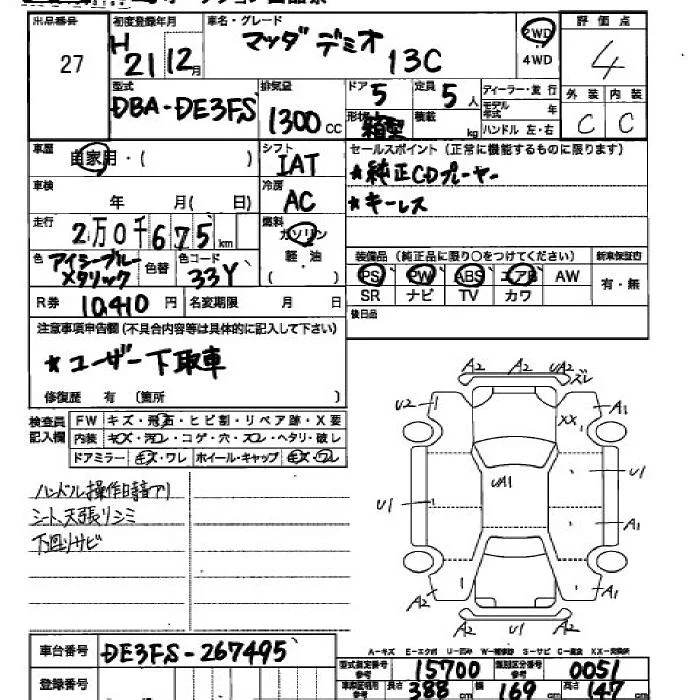 出品番号 初度登録年月 車名・グレード 評価点
27 H 21年 12月 マツダ デミオ 13C 2WD ・ 4WD 4
型式 排気量 ドア 5 定員 5人 ディーラー・並行 外装 内装
DBA-DE3FS 1300cc 形状 箱型 積載 kg モデル年式 年 ハンドル 左・右 C C
車歴 自家用・( ) シフト IAT セールスポイント(正常に機能するものに限ります)
車検 年 月( 日) 冷房 AC ★純正CDプレーヤー
走行 2万0千675km 燃料 ガソリン ★キーレス
色 アイシーブルーメタリック 色替 色コード 33Y 軽・油 ( ) 装備品(純正品に限り○をつけてください) 新車保証書
PS PW ABS エアB AW 有・無
R券 10,410円 名変期限 月 日 SR ナビ TV カワ
注意事項申告欄(不具合内容等は具体的に記入して下さい) 後日品
★ユーザー下取車
修復歴 有 (箇所 )
検査員記入欄 FW キズ・飛石・ヒビ割・リペア跡・X要
内装 キズ・汚レ・コゲ・穴・スレ・ヘタリ・破レ
ドアミラー キズ・ワレ ホイール・キャップ キズ・ワレ
ハンドル操作時音アリ
シート、天張りシミ
下廻りサビ
A2 A2 UA2 ズレ
U2 XX A1
UA1 U1
U1 A1
A2 A1
A2 A2
車台番号 DE3FS-267495
登録番号
A=キズ E=エクボ U=凹み W=補修跡 S=サビ C=腐食 XX=交換済
型式指定番号 参考 15700 類別区分番号 参考 0051
車庫証明用 参考 長さ 388cm 幅 169cm 高さ 147cm